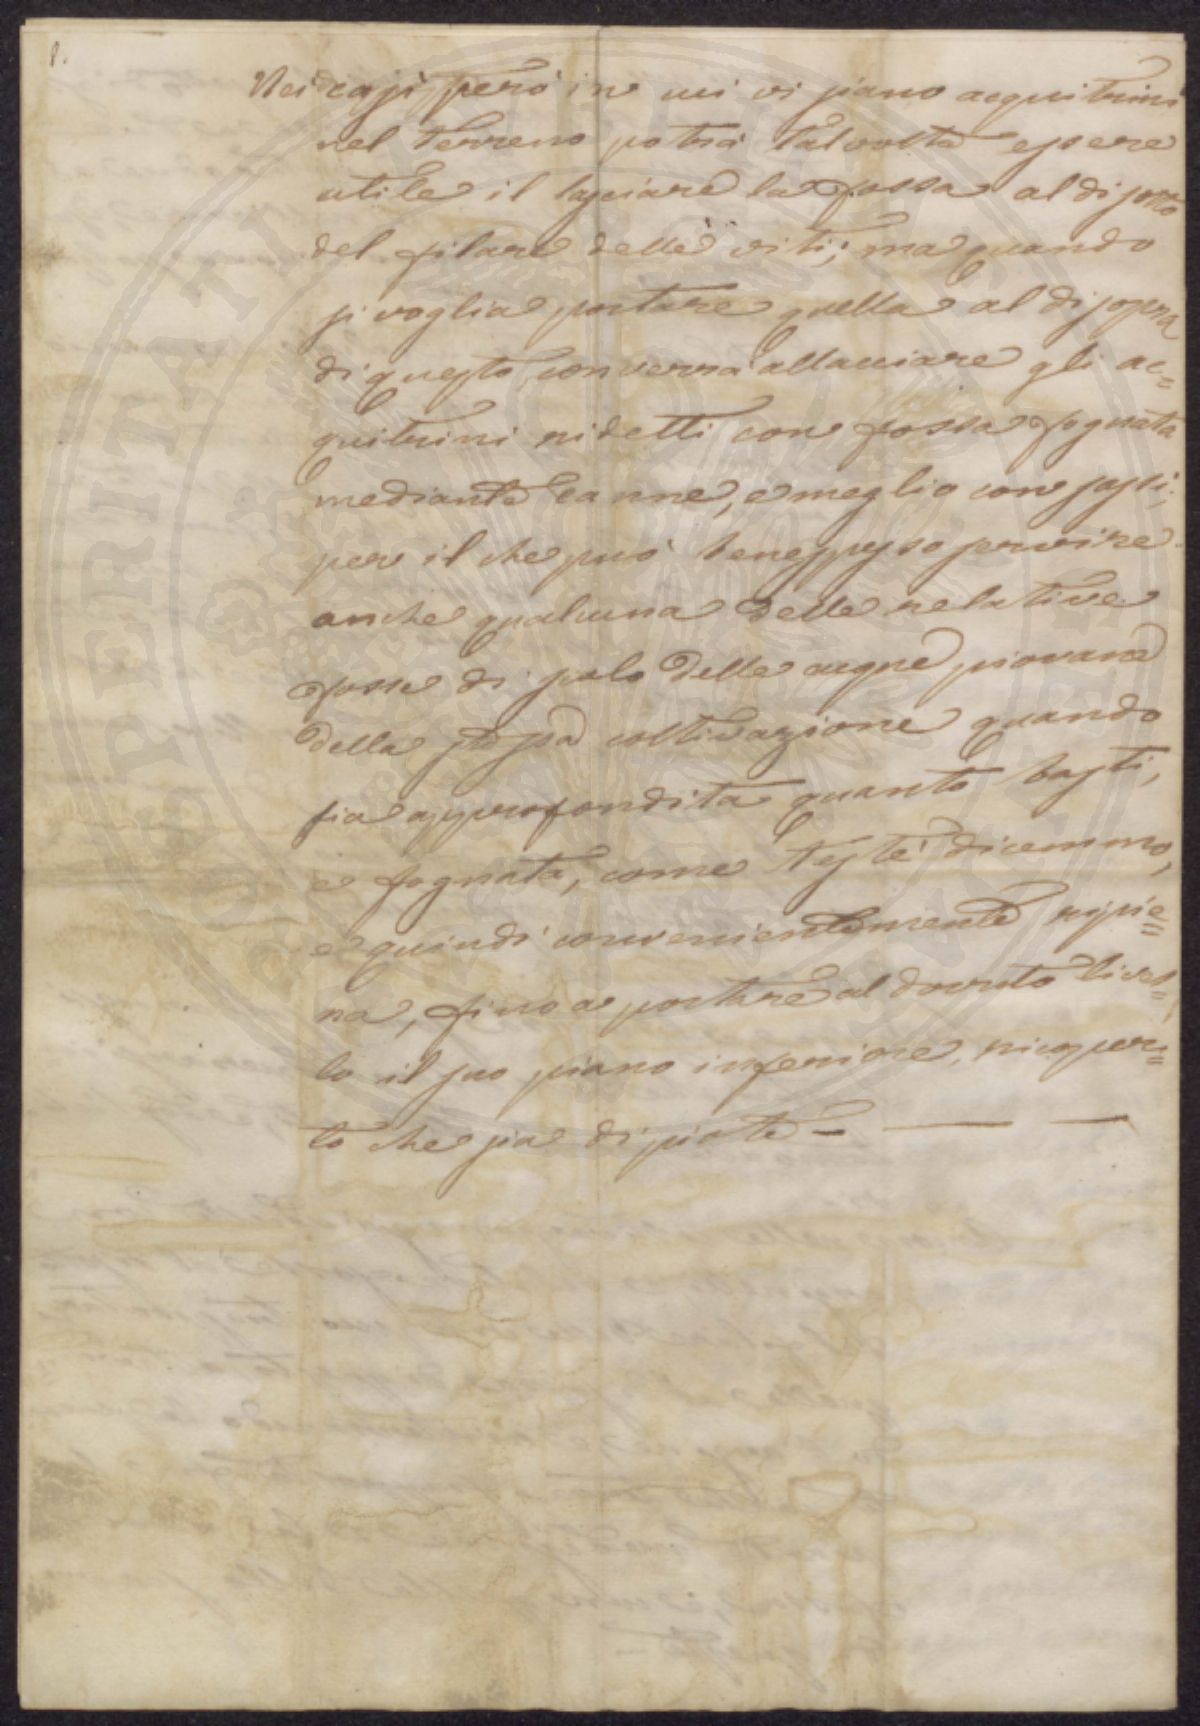 8.
Nei casi però in cui vi siano acquitrini
nel terreno potrà talvolta essere
utile il lasciare la fossa al di sotto
del filare delle viti; ma quando
si voglia portare quella al di sopra
di questo, converrà allacciare gli ac=
quitrini ridetti con fossa fognata
mediante canne, e meglio con sassi:
per il che può bene spesso servire
anche qualcuna delle relative
fosse di scolo delle acque piovane
della stessa coltivazione quando
sia approfondita quanto basti,
e fognata, come testè dicemmo,
e quindi convenientemente ripie=
na, fino a portare al dovuto livel=
lo il suo piano inferiore, ricoper=
to che sia di piote —